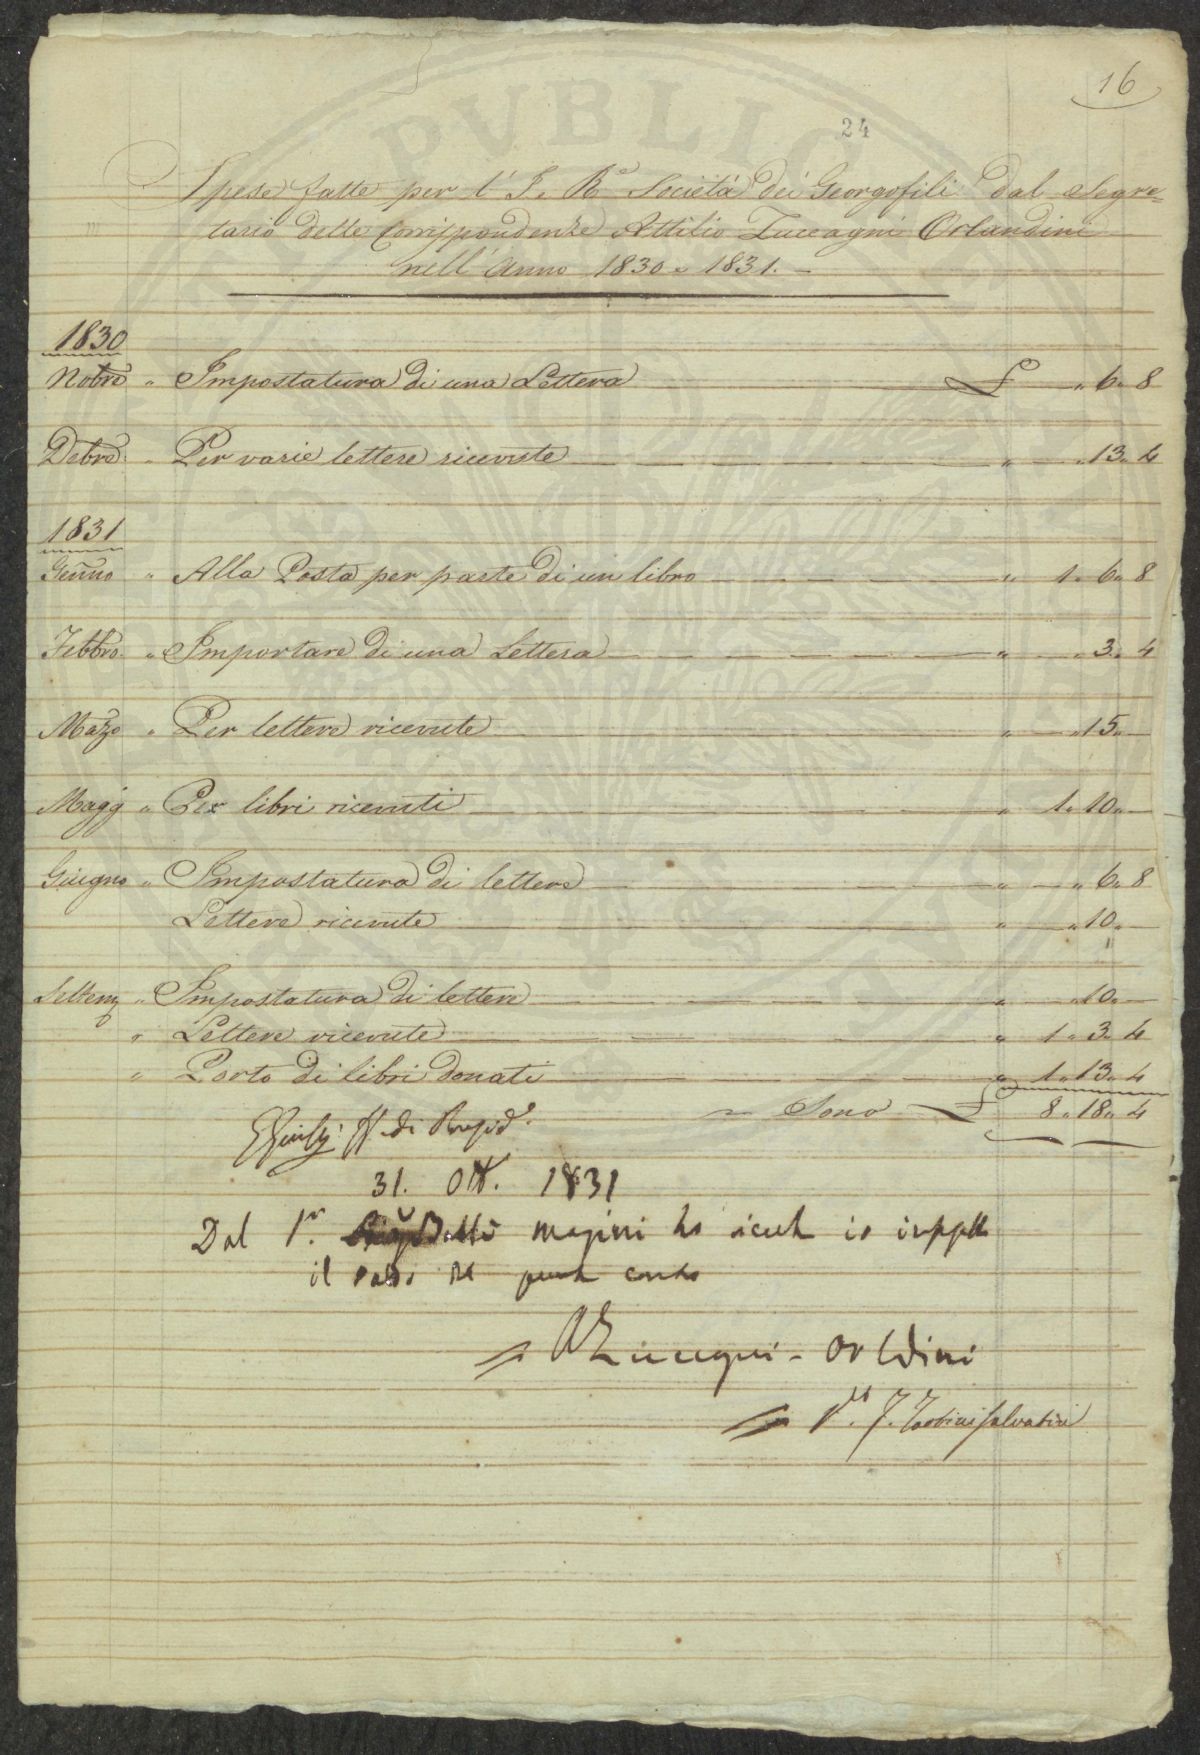 16
24
Spese fatte per l' I. Ra. Società dei Georgofili dal Segre=
tario delle Corrispondenze Attilio Zuccagni Orlandini
nell'Anno 1830 e 1831.
1830
Nobre " Impostatura di una Lettera £ " 6 " 8
Debre " Per varie lettere ricevute " " 13 " 4
1831
Genno " Alla Posta per parte di un libro " 1 " 6 " 8
Febbro " Importare di una Lettera " " 3 " 4
Mazo " Per lettere ricevute " " 15 " —
Magg " Per libri ricevuti " 1 " 10 " —
Giugno " Impostatura di lettere " " 6 " 8
Lettere ricevute " " 10 " —
Settem " Impostatura di lettere " " 10 " —
" Lettere ricevute " 1 " 3 " 4
" Porto di libri donati " 1 " 13 " 4
Sono £ 8 " 18 " 4
di
31. Ott. 1831
Dal Magini ho io
il conto
= A Zuccagni - Orldini
= Tartini Salvatici
PVBLIC